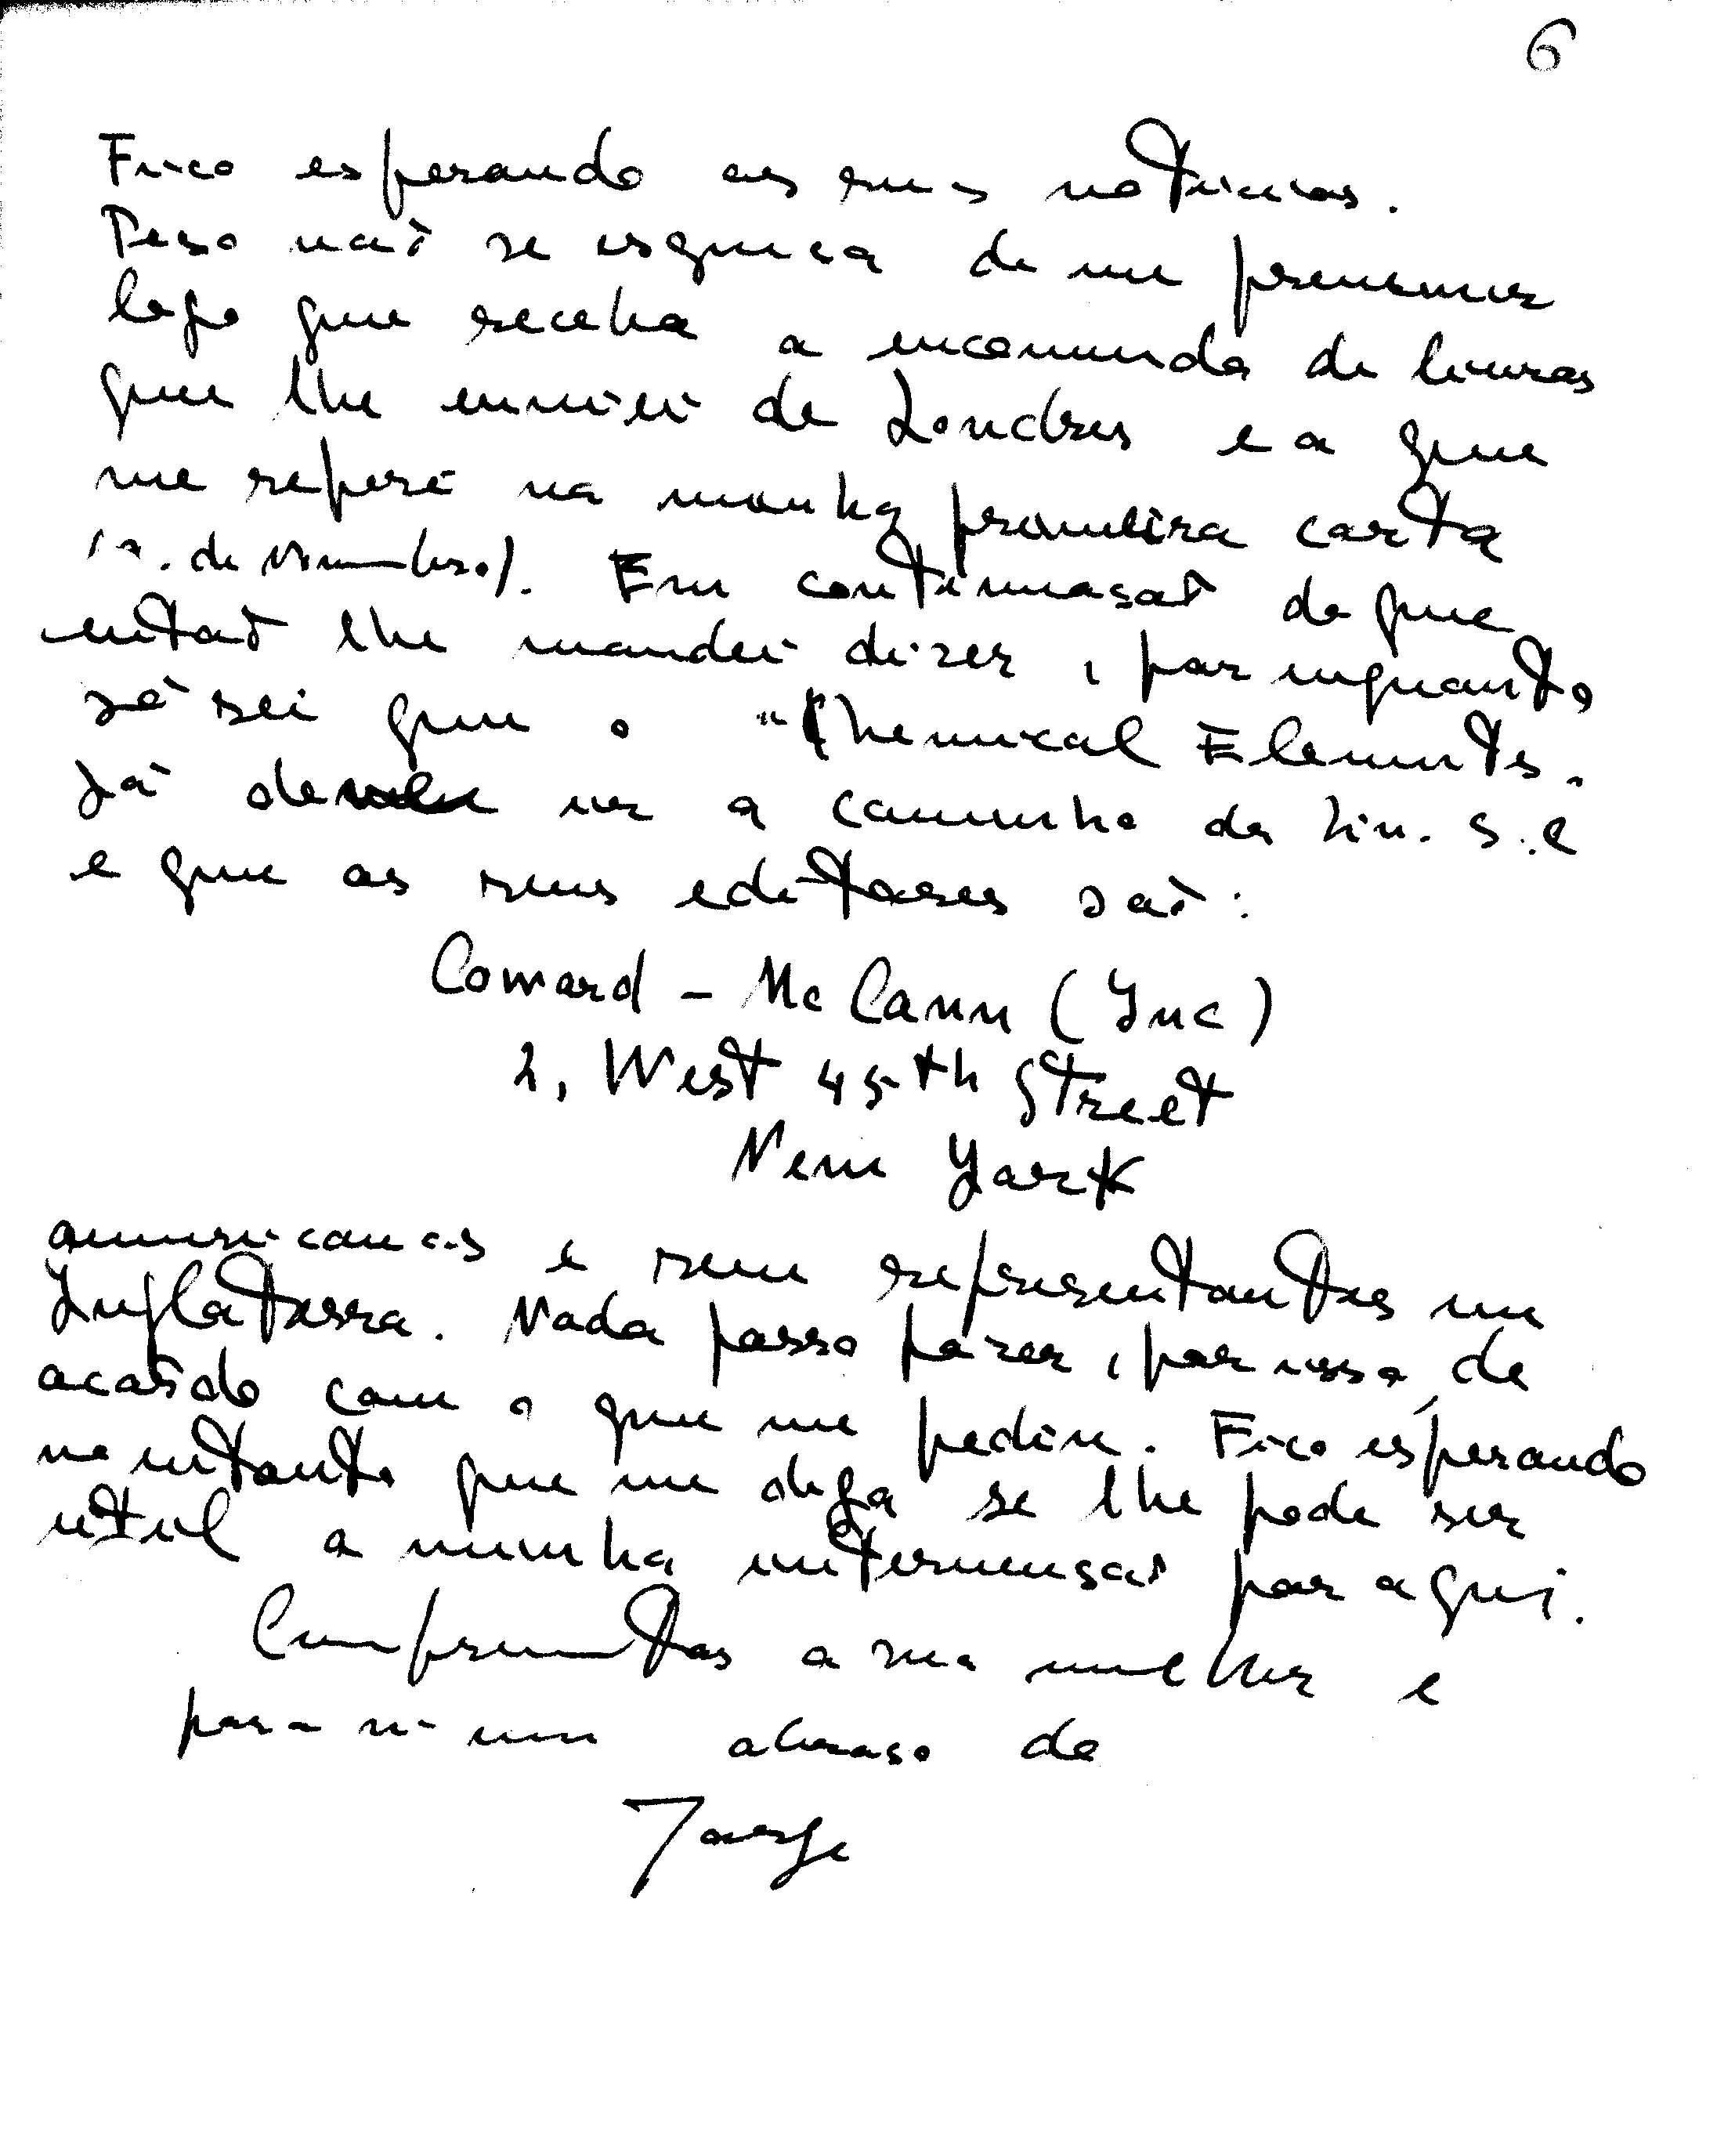 6
Fico esperando as suas notícias.
Peço não se esqueça de me prevenir
logo que receba a encomenda de livros
que lhe enviei de Londres e a que
me referi na minha primeira carta
(a. de Novembro). Em continuação do que
então lhe mandei dizer, por enquanto,
só sei que o "Chemical Elements"
já deve ir a caminho da Liv. S. C
e que os seus editores são:
Coward - McCann (Inc)
2, West 45th Street
New York
americanos e sem representantes em
Inglaterra. Nada posso fazer, por isso, de
acôrdo com o que me pediu. Fico esperando
no entanto que me diga se lhe pode ser
útil a minha intervenção por aqui.
Cumprimentos a sua mulher e
para si um abraço do
Jorge